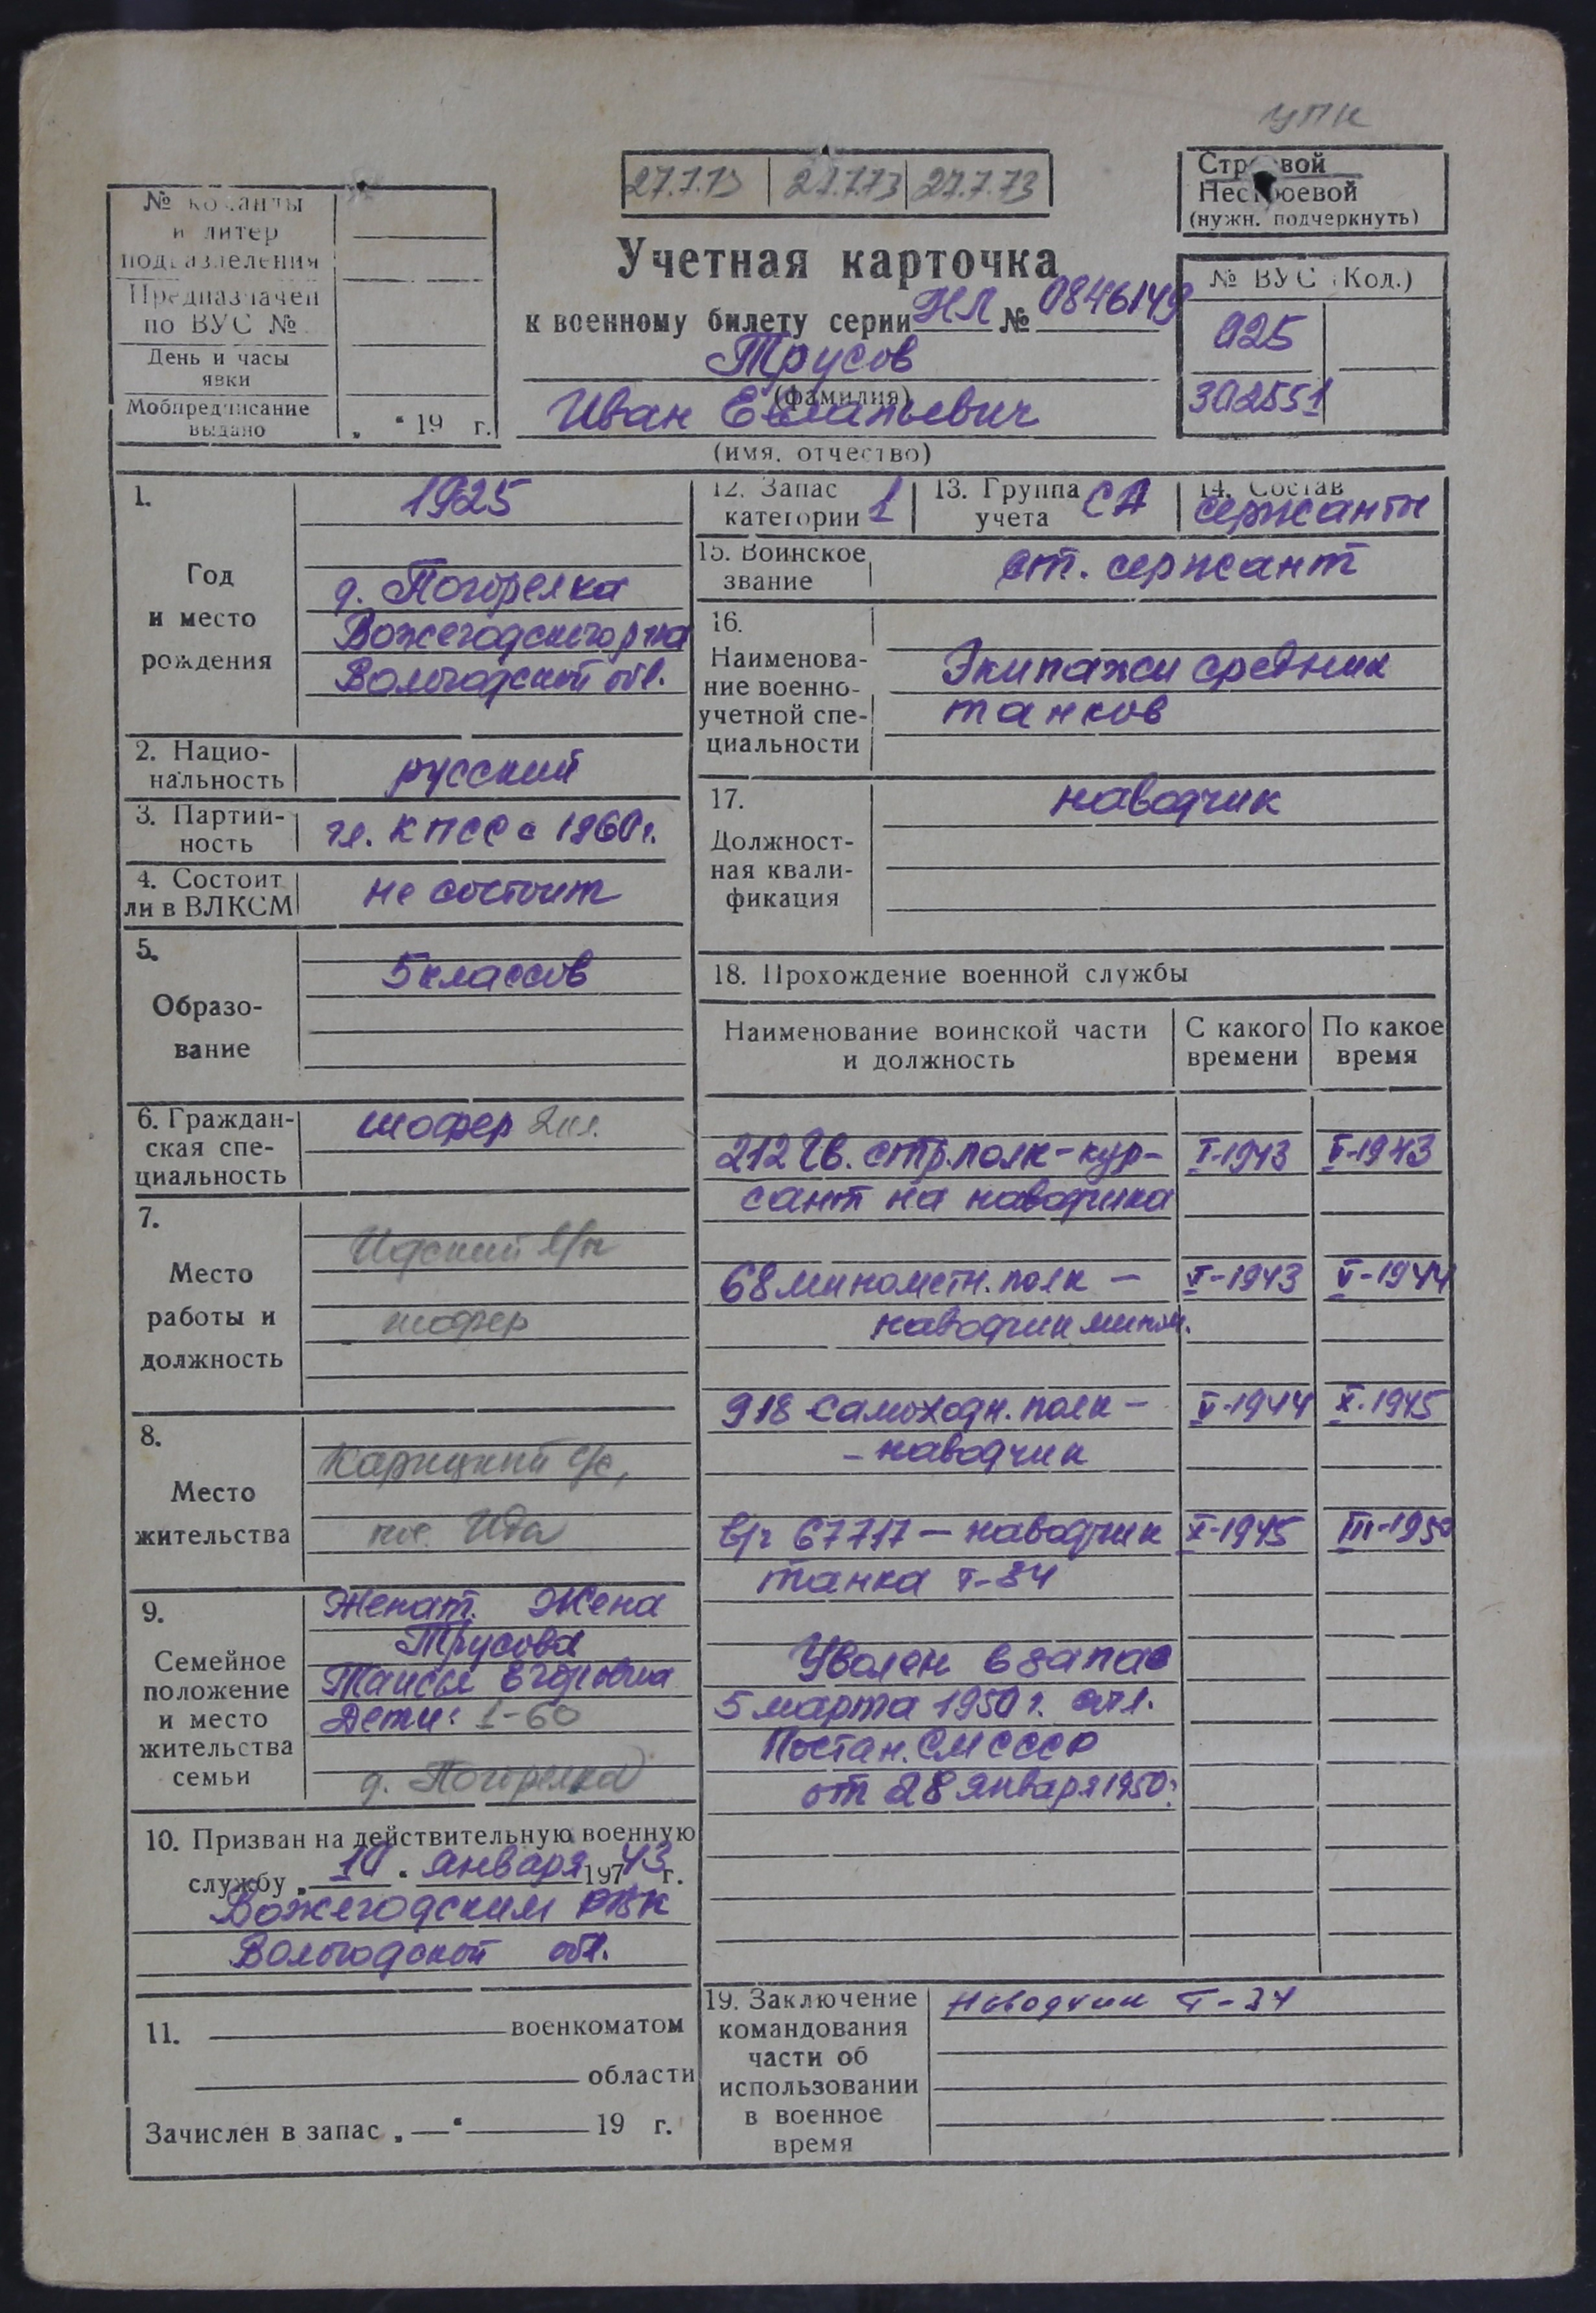 УПК
27.7.73 27.7.73 27.7.73
Строевой
Нестроевой
(нужн. подчеркнуть)
№ команды
и литер
подразделения
Предназначен
по ВУС №
День и часы
явки
Мобпредписание
выдано
„ “ 19 г.
Учетная карточка
к военному билету серии НЛ № 0846149
Трусов
(фамилия)
Иван Емельевич
(имя, отчество)
№ ВУС (Код.)
925
302551
1.
Год
и место
рождения
1925
д. Погорелка
Вожегодского р-на
Вологодской обл.
2. Нацио-
нальность
русский
3. Партий-
ность
чл. КПСС с 1960 г.
4. Состоит
ли в ВЛКСМ
не состоит
5.
Образо-
вание
5 классов
6. Граждан-
ская спе-
циальность
шофер 2 кл.
7.
Место
работы и
должность
Идский л/п
шофер
8.
Место
жительства
Карицкий с/с,
пос. Ида
9.
Семейное
положение
и место
жительства
семьи
Женат. Жена
Трусова
Таисья Егоровна
Дети: 1-60
д. Погорелка
10. Призван на действительную военную
службу „ 10 “ января 197 43 г.
Вожегодским РВК
Вологодской обл.
11. военкоматом
области
Зачислен в запас „ — “ 19 г.
12. Запас
категории 1
13. Группа
учета СА
14. Состав
сержанты
15. Воинское
звание
ст. сержант
16.
Наименова-
ние военно-
учетной спе-
циальности
Экипажи средних
танков
17.
Должност-
ная квали-
фикация
наводчик
18. Прохождение военной службы
Наименование воинской части
и должность
С какого
времени
По какое
время
212 Гв. стр. полк - кур- I-1943 V-1943
сант на наводчика
68 минометн. полк - V-1943 V-1944
наводчик мином.
918 самоходн. полк - V-1944 X-1945
- наводчик
в/ч 67717 - наводчик X-1945 III-1950
танка Т-34
Уволен в запас
5 марта 1950 г.
Постан. СМ СССР
от 28 января 1950 г.
19. Заключение
командования
части об
использовании
в военное
время
Наводчик Т-34